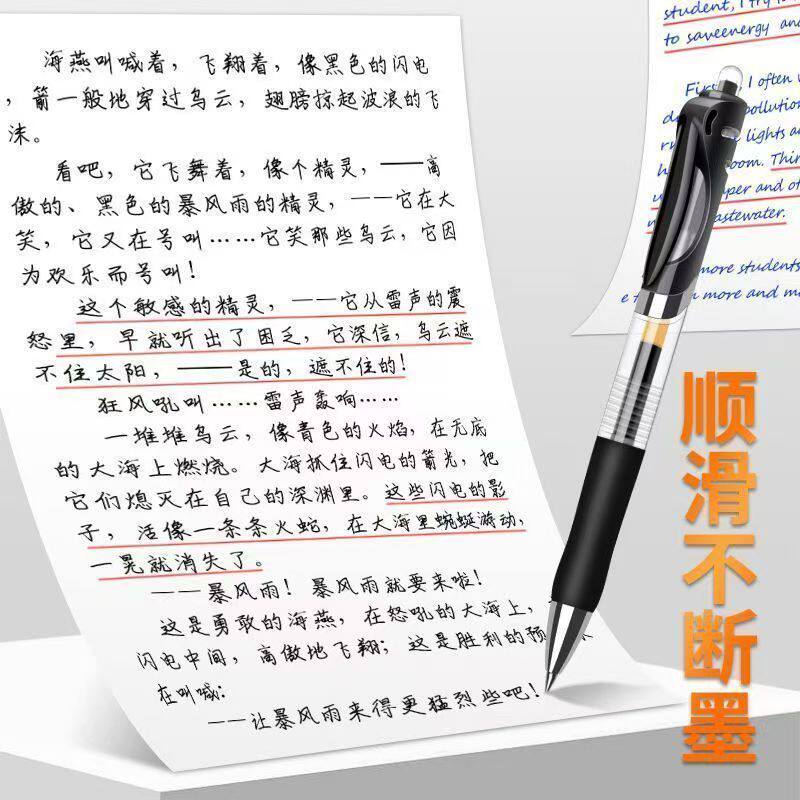 海燕叫喊着，飞翔着，像黑色的闪电
，箭一般地穿过乌云，翅膀掠起波浪的飞
沫。
看吧，它飞舞着，像个精灵，——高
傲的、黑色的暴风雨的精灵，——它在大
笑，它又在号叫……它笑那些乌云，它因
为欢乐而号叫！
这个敏感的精灵，——它从雷声的震
怒里，早就听出了困乏，它深信，乌云遮
不住太阳，——是的，遮不住的！
狂风吼叫……雷声轰响……
一堆堆乌云，像青色的火焰，在无底
的大海上燃烧。大海抓住闪电的箭光，把
它们熄灭在自己的深渊里。这些闪电的影
子，活像一条条火蛇，在大海里蜿蜒游动，
一晃就消失了。
——暴风雨！暴风雨就要来啦！
这是勇敢的海燕，在怒吼的大海上，
闪电中间，高傲地飞翔；这是胜利的预
在叫喊：
——让暴风雨来得更猛烈些吧！
student, I try to
to saveenergy and
I often
pollution
lights and
room. Thir
paper and ot
wastewater.
more students
in more and m
顺滑不断墨